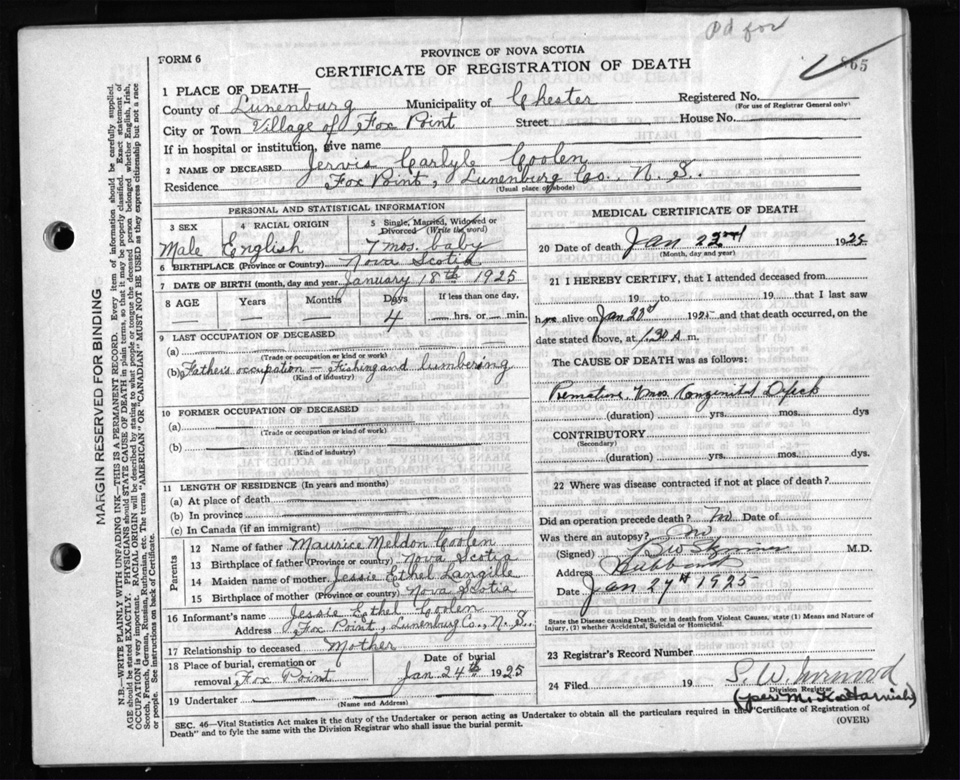 Pd for
865
FORM 6
PROVINCE OF NOVA SCOTIA
CERTIFICATE OF REGISTRATION OF DEATH
1 PLACE OF DEATH—
County of Lunenburg Municipality of Chester Registered No.
(For use of Registrar General only)
City or Town Village of Fox Point Street House No.
If in hospital or institution, give
2 NAME OF DECEASED Jervis Carlyle Coolen
Residence Fox Point, Lunenburg Co., N. S.
(Usual place of abode)
PERSONAL AND STATISTICAL INFORMATION
3 SEX 4 RACIAL ORIGIN 5 Single, Married, Widowed or Divorced (Write the word)
Male English 7 mos. baby
6 BIRTHPLACE (Province or Country) Nova Scotia
7 DATE OF BIRTH (month, day and year) January 18th 1925
8 AGE Years Months Days If less than one day,
— — — 4 — hrs. or — min.
9 LAST OCCUPATION OF DECEASED
(a)
(Trade or occupation or kind of work)
(b) Father's occupation — Fishing and lumbering
(Kind of industry)
10 FORMER OCCUPATION OF DECEASED
(a)
(Trade or occupation or kind of work)
(b)
(Kind of industry)
11 LENGTH OF RESIDENCE (In years and months)
(a) At place of death
(b) In province
(c) In Canada (if an immigrant)
Parents
12 Name of father Maurice Meldon Coolen
13 Birthplace of father (Province or country) Nova Scotia
14 Maiden name of mother Jessie Ethel Langille
15 Birthplace of mother (Province or country) Nova Scotia
16 Informant's name Jessie Ethel Coolen
Address Fox Point, Lunenburg Co., N. S.
17 Relationship to deceased Mother
18 Place of burial, cremation or removal Fox Point
Date of burial Jan 24th 1925
19 Undertaker
(Name and Address)
MEDICAL CERTIFICATE OF DEATH
20 Date of death Jan 22nd 1925
(Month, day and year)
21 I HEREBY CERTIFY, that I attended deceased from
19 to 19 that I last saw
h alive on Jan 192 and that death occurred, on
date stated above, at 1.30 A m.
The CAUSE OF DEATH was as follows:
Premature, 7 mos. Congenital Defect
(duration) yrs. mos. dys
CONTRIBUTORY
(Secondary)
(duration) yrs. mos. dys.
22 Where was disease contracted if not at place of death?
Did an operation precede death? no Date of
Was there an autopsy? no
(Signed) M.D.
Address Hubbards
Date Jan 27th 1925
State the Disease causing Death, or in death from Violent Causes, state (1) Means and Nature of Injury, (2) whether Accidental, Suicidal or Homicidal.
23 Registrar's Record Number
24 Filed 19 S. W.
Division Registrar
(per M. K. Harnish)
SEC. 46—Vital Statistics Act makes it the duty of the Undertaker or person acting as Undertaker to obtain all the particulars required in the "Certificate of Registration of
Death" and to fyle the same with the Division Registrar who shall issue the burial permit.
(OVER)
MARGIN RESERVED FOR BINDING
N.B.—WRITE PLAINLY WITH UNFADING INK—THIS IS A PERMANENT RECORD. Every item of information should be carefully supplied.
AGE should be stated EXACTLY. PHYSICIANS should STATE CAUSE OF DEATH in plain terms, so that it may be properly classified. Exact statement of
OCCUPATION is very important. RACIAL ORIGIN will be described by stating to what people or tongue the deceased person belonged whether English, Irish,
Scotch, French, German, Russian, Ruthenian, etc. The terms "AMERICAN" OR "CANADIAN" MUST NOT BE USED as they express citizenship but not a race
or people. See instructions on back of Certificate.